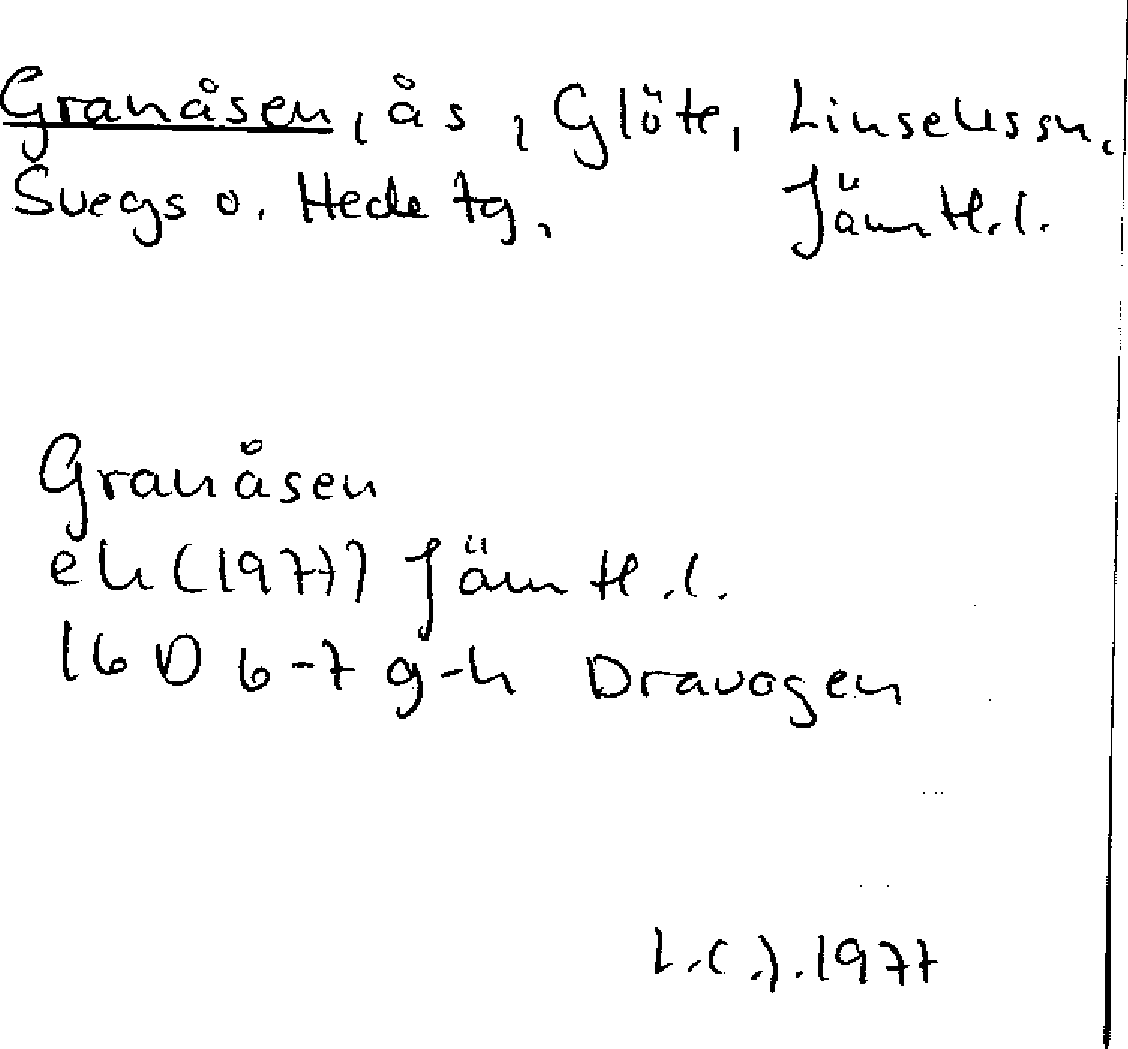 Granåsen, ås, Glöte, Linsells sn,
Svegs o. Hede tg, Jämtl. l.
Granåsen
ek (1977) Jämtl. l.
16 D 6-7 g-h Dravagen
L.C.J. 1977